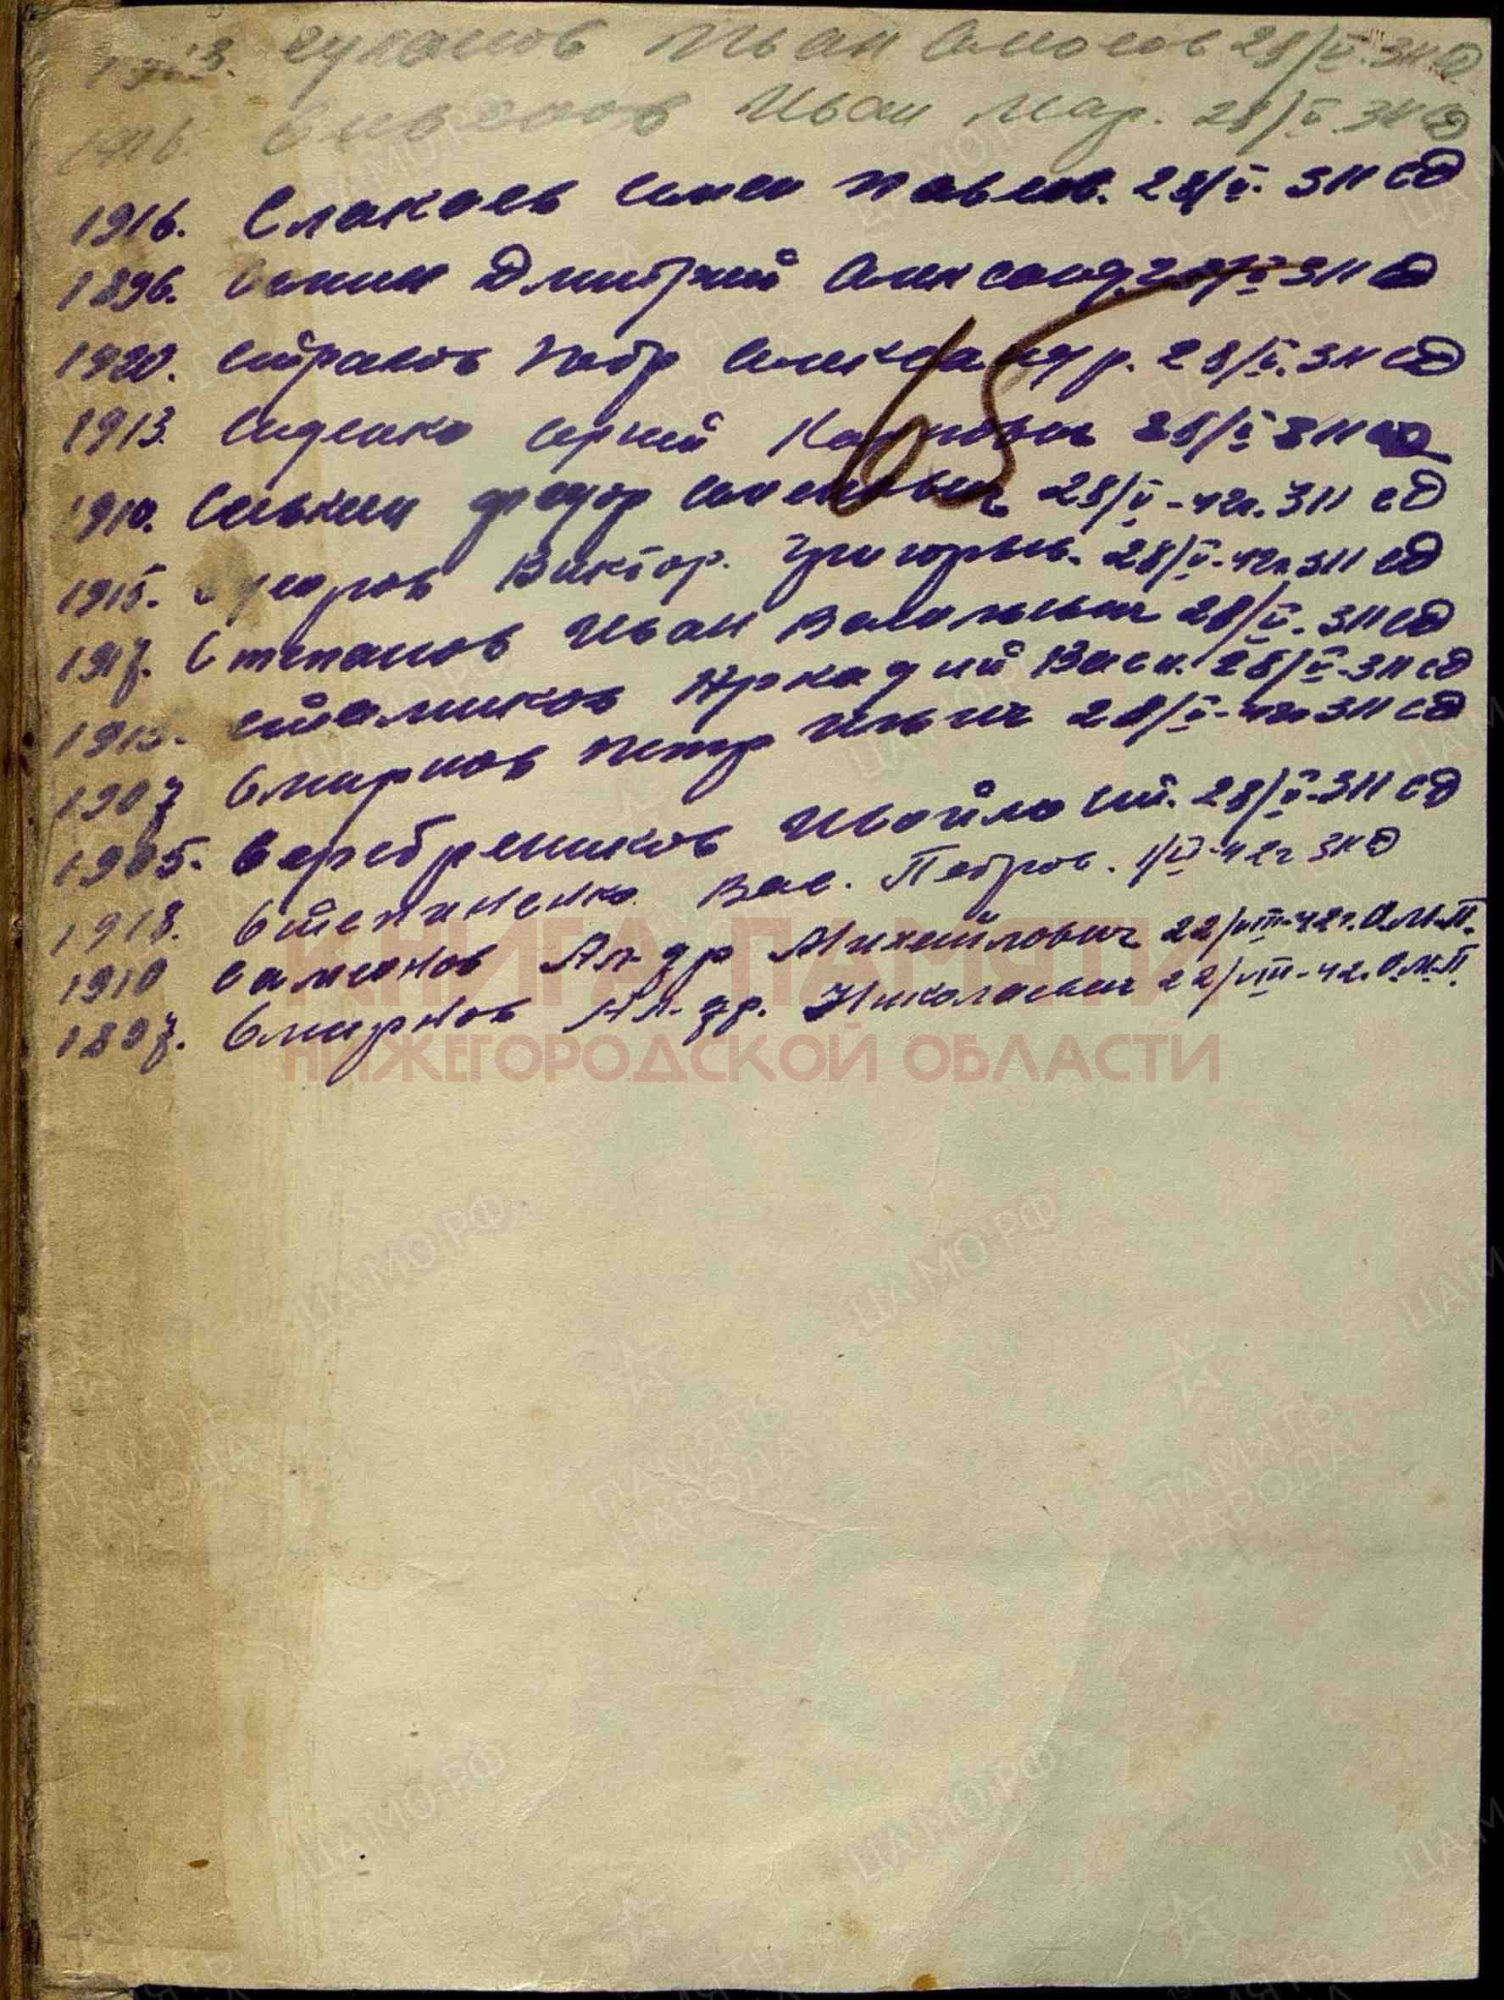 Суханов Иван 28/V. 311 сд
Иван Мар. 28/V 311 сд
1916. Слакаев Павлов. 28/V. 311 сд
1896. Сенин Дмитрий Александ. 28/V 311 сд
1920. Страхов Петр Александр. 28/V. 311 сд
1913. Сиденко Сергей Карпович 28/V 311 сд
1910. Федор Семенович 28/V-42г. 311 сд
1915. Виктор. Григорьев. 28/V-42г. 311 сд
1917. Степанов Иван Васильевич 28/V. 311 сд
1915. Стальников Аркадий Васил. 28/V-311 сд
1907 Смирнов Петр Ильич 28/V-42г 311 сд
1905. Серебреников Измайло 28/V-311 сд
1918. Вас. Петров. 42г 311 сд
1910 Самсонов Ал-др Михайлович 22/VIII-42г. О.М.П.
1897. Смирнов Ал-др. Николаевич 22/VIII-42. О.М.П.
65
КНИГА ПАМЯТИ
НИЖЕГОРОДСКОЙ ОБЛАСТИ
ЦАМО.РФ
ПАМЯТЬ
НАРОДА